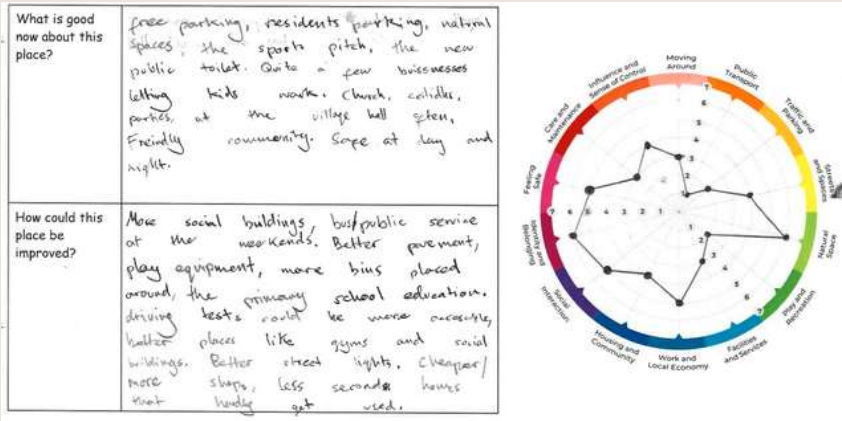 What is good
now about this
place?
free parking, residents parking, natural
spaces, the sports pitch, the new
public toilet. Quite a few buissnesses
letting kids work. Church, ceilidhs,
parties, at the village hall often,
Freindly community. Safe at day and
night.
How could this
place be
improved?
More social buildings, bus/public service
at the weekends. Better pavement,
play equipment, more bins placed
around, the primary school education.
driving tests could be more accessible,
better places like gyms and social
buildings. Better street lights. Cheaper/
more shops, less seconds homes
that hardly get used.
Moving
Around
Public
Transport
Traffic and
Parking
Streets
and Spaces
Natural
Space
Play and
Recreation
Facilities
and Services
Work and
Local Economy
Housing and
Community
Social
Interaction
Identity and
Belonging
Feeling
Safe
Care and
Maintenance
Influence and
Sense of Control
7
6
5
4
3
2
1
7 6 5 4 3 2 1
1
2
3
4
5
6
7